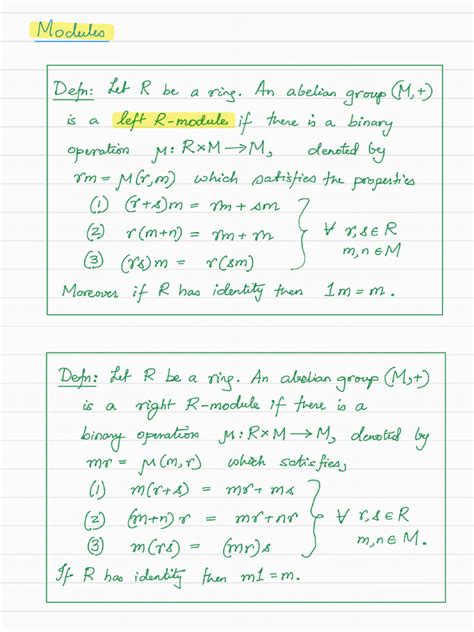 Modules
Defn: Let R be a ring. An abelian group (M,+)
is a left R-module if there is a binary
operation μ: R×M→M, denoted by
rm = μ(r,m) which satisfies the properties
(1) (r+s)m = rm + sm
(2) r(m+n) = rm + rn
(3) (rs)m = r(sm)
∀ r,s∈R
m,n∈M
Moreover if R has identity then 1m=m.
Defn: Let R be a ring. An abelian group (M,+)
is a right R-module if there is a
binary operation μ: R×M→M, denoted by
mr = μ(m,r) which satisfies,
(1) m(r+s) = mr + ms
(2) (m+n)r = mr+nr
(3) m(rs) = (mr)s
∀ r,s∈R
m,n∈M.
If R has identity then m1=m.